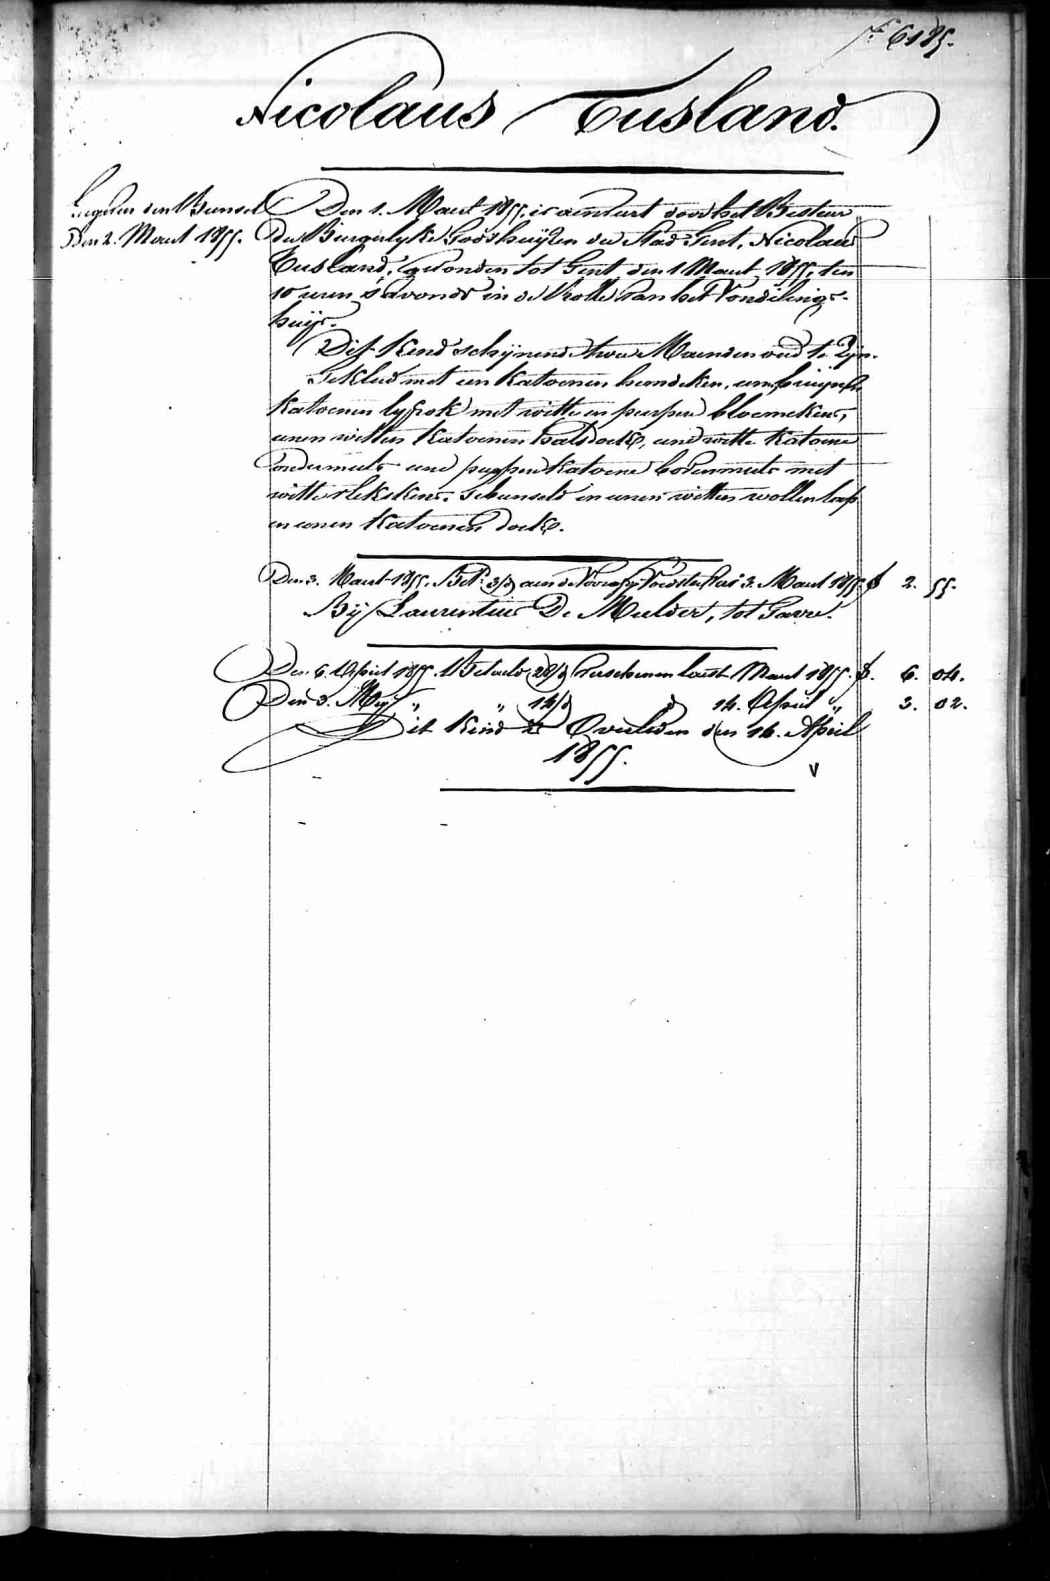 f.º 6185.
Nicolaus Tusland.
Ingezien den Bundel
Den 2. Maart 1855.
Den 1. Maart 1855, is aenveert door het Bestuur
der Burgerlyke Godshuijzen der Stad Gent, Nicolaus
Tusland, gevonden tot Gent, den 1 Maart 1855, ten
10 uren s'avonds in de Rolle van het Vondelings-
huijs.
Dit Kind schijnende twee Maenden oud te Zijn.
Gekleed met een Katoenen hemdeken, een bruijn
Katoenen lyfrok met witte en purper bloemekens,
eenen witten Katoenen halsdoek, eene witte Katoene
ondermuts eene purper Katoene bovenmuts met
witte vlekskens. Gebunseld in eenen witten wollen lap
en eenen Katoenen doek.
Den 3. Maart 1855. Bet. 3/d aen de Voedster 3. Maart 1855. f 2. 55.
Bij Laurentius De Mulder, tot Gavre.
Den 6. April 1855. Betaeld 28/d Verschenen laest Maart 1855. f. 6. 04.
Den 3. Meij " " 14/d d 14. April " 3. 02.
Dit Kind is Overleden den 14. April
1855.
V